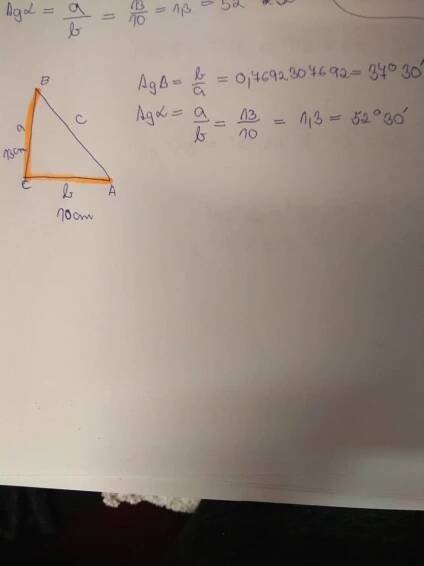 tgα = a/b = 13/10 = 1,3 = 52°
B
a
13cm
c
C
b
A
10cm
tgB = b/a = 0,7692307692 = 37°30′
tgα = a/b = 13/10 = 1,3 = 52°30′